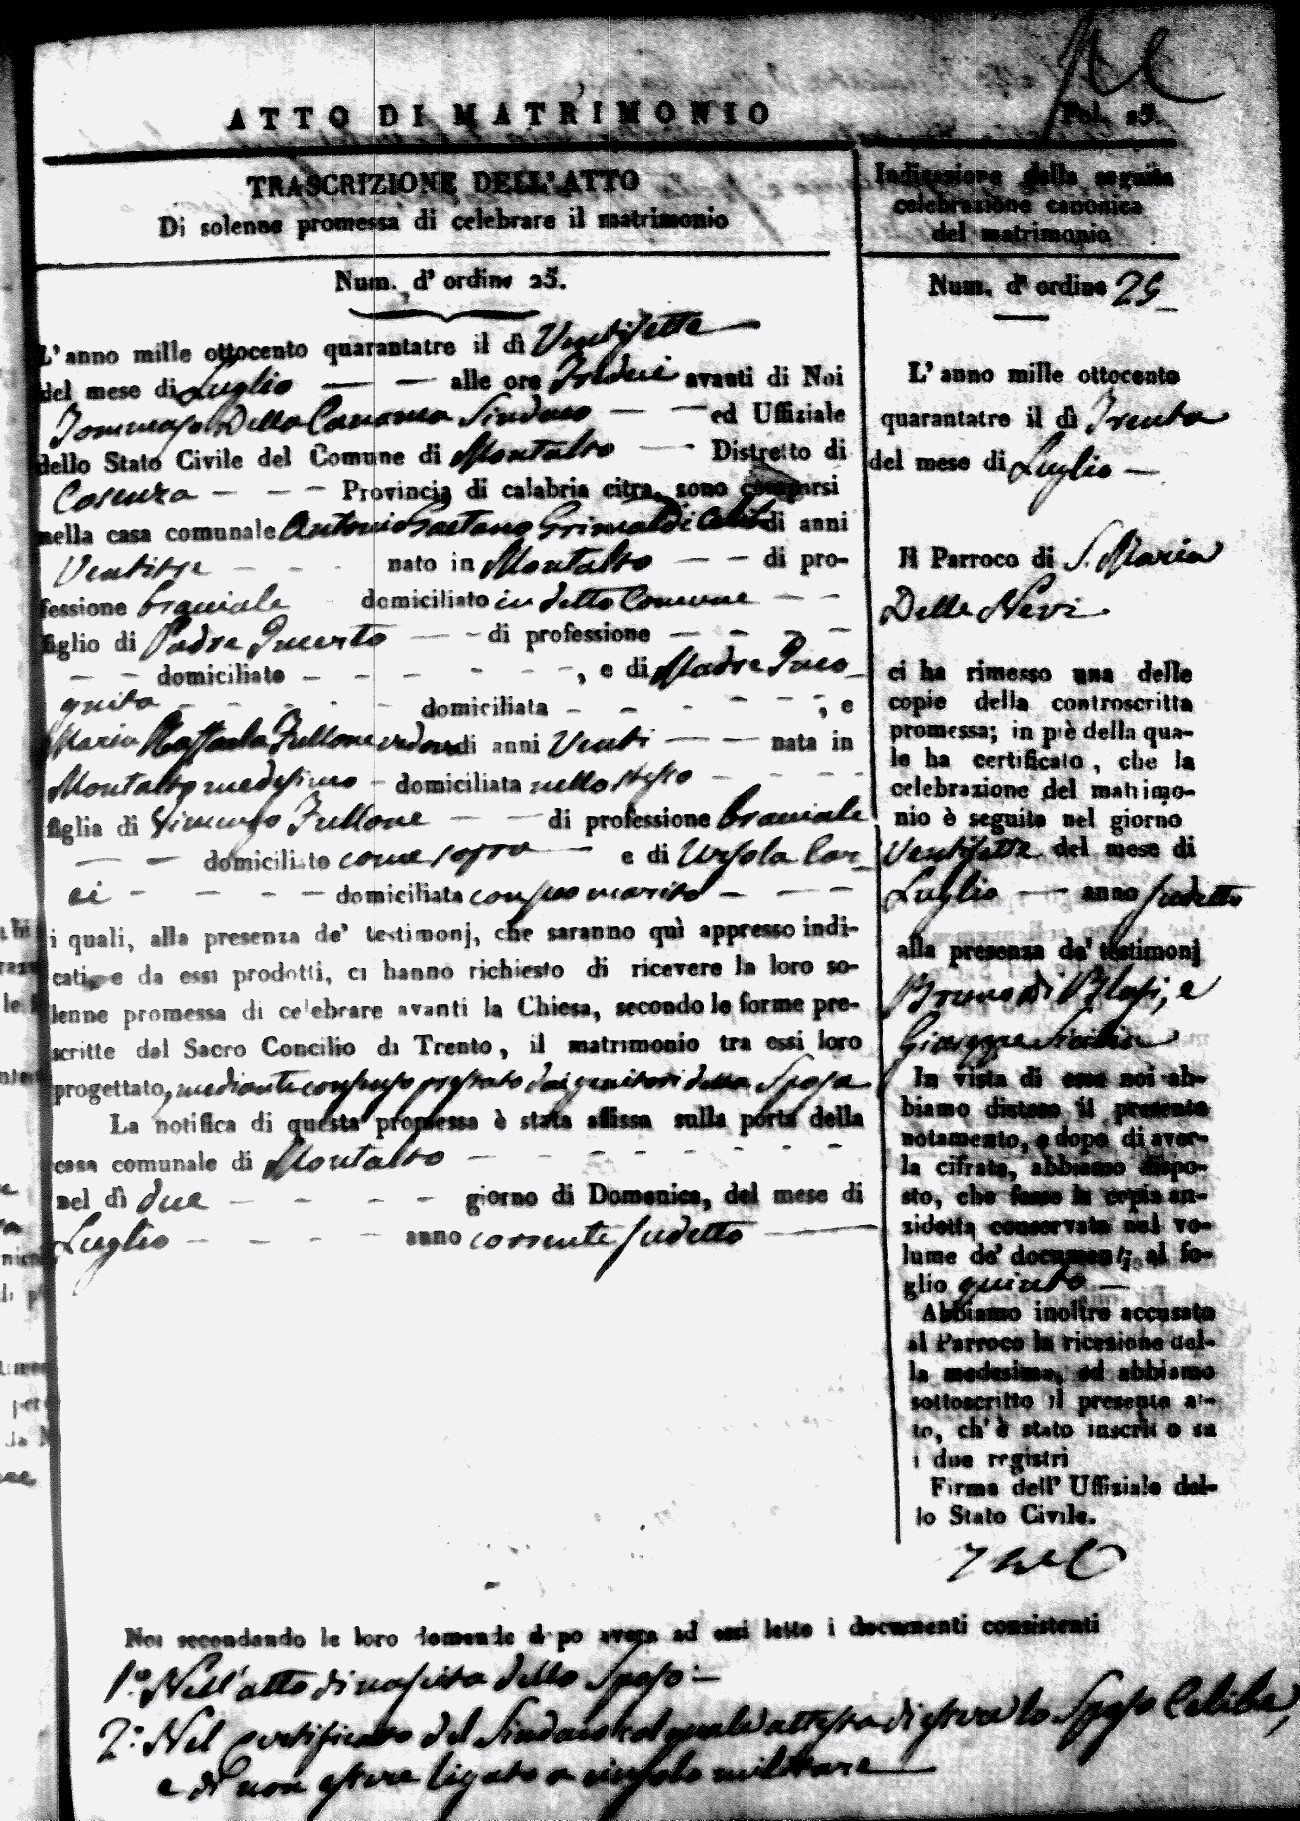 ATTO DI MATRIMONIO
Fol. 25.
TRASCRIZIONE DELL'ATTO
Di solenne promessa di celebrare il matrimonio
Num. d' ordine 25.
L'anno mille ottocento quarantatre il dì Ventisette
del mese di Luglio — — alle ore Tredici avanti di Noi
Tommaso Della Sindaco — — ed Uffiziale
dello Stato Civile del Comune di Montalto — Distretto di
Cosenza - - - Provincia di calabria citra, sono comparsi
nella casa comunale Antonio Gaetano Grimaldi di anni
Ventitre - - - nato in Montalto — — di pro-
fessione bracciale domiciliato in detto Comune - -
figlio di Padre Incerto — - di professione - - - -
- - domiciliato - - - - - -, e di Madre Inco_
gnita - - - - - domiciliata - - - - - ; e
Maria Raffaela Fullone di anni Venti — — nata in
Montalto medesimo - domiciliata nello stesso - - - -
figlia di Vincenzo Fullone — — di professione bracciale
— — domiciliato come sopra — e di Ursola Car_
ci - - - - domiciliata con suo marito - - -
i quali, alla presenza de' testimonj, che saranno quì appresso indi-
cati, e da essi prodotti, ci hanno richiesto di ricevere la loro so-
lenne promessa di celebrare avanti la Chiesa, secondo le forme pre-
scritte dal Sacro Concilio di Trento, il matrimonio tra essi loro
progettato, mediante consenso prestato dai genitori della Sposa
La notifica di questa promessa è stata affissa sulla porta della
casa comunale di Montalto - - - - - - - -
nel dì due - - - - giorno di Domenica, del mese di
Luglio - - - - anno corrente sudetto —
Indicazione della seguita
celebrazione canonica
del matrimonio
Num. d' ordine 25_
L' anno mille ottocento
quarantatre il dì Trenta
del mese di Luglio —
Il Parroco di S. Maria
Delle Nevi
ci ha rimesso una delle
copie della controscritta
promessa; in piè della qua-
le ha certificato, che la
celebrazione del matrimo-
nio è seguita nel giorno
Ventisette del mese di
Luglio — anno sudetto
alla presenza de' testimonj
Bruno di Blasi, e
Giuseppe Sicilia
In vista di essa noi ab-
biamo disteso il presente
notamento, e dopo di aver-
la cifrata, abbiamo dispo-
sto, che fosse la copia an-
zidetta conservata nel vo-
lume de' documenti, al fo-
glio quinto —
Abbiamo inoltre accusato
al Parroco la ricezione del-
la medesima, ed abbiamo
sottoscritto il presente at-
to, ch' è stato inscritto su
i due registri
Firma dell' Uffiziale del-
lo Stato Civile.
Noi secondando le loro domande dopo avere ad essi letto i documenti consistenti
1.° Nell'atto di nascita dello Sposo: —
2.° Nel certificato del Sindaco col quale attesta di essere lo Sposo Celibe,
e di non essere ligato a vincolo militare —